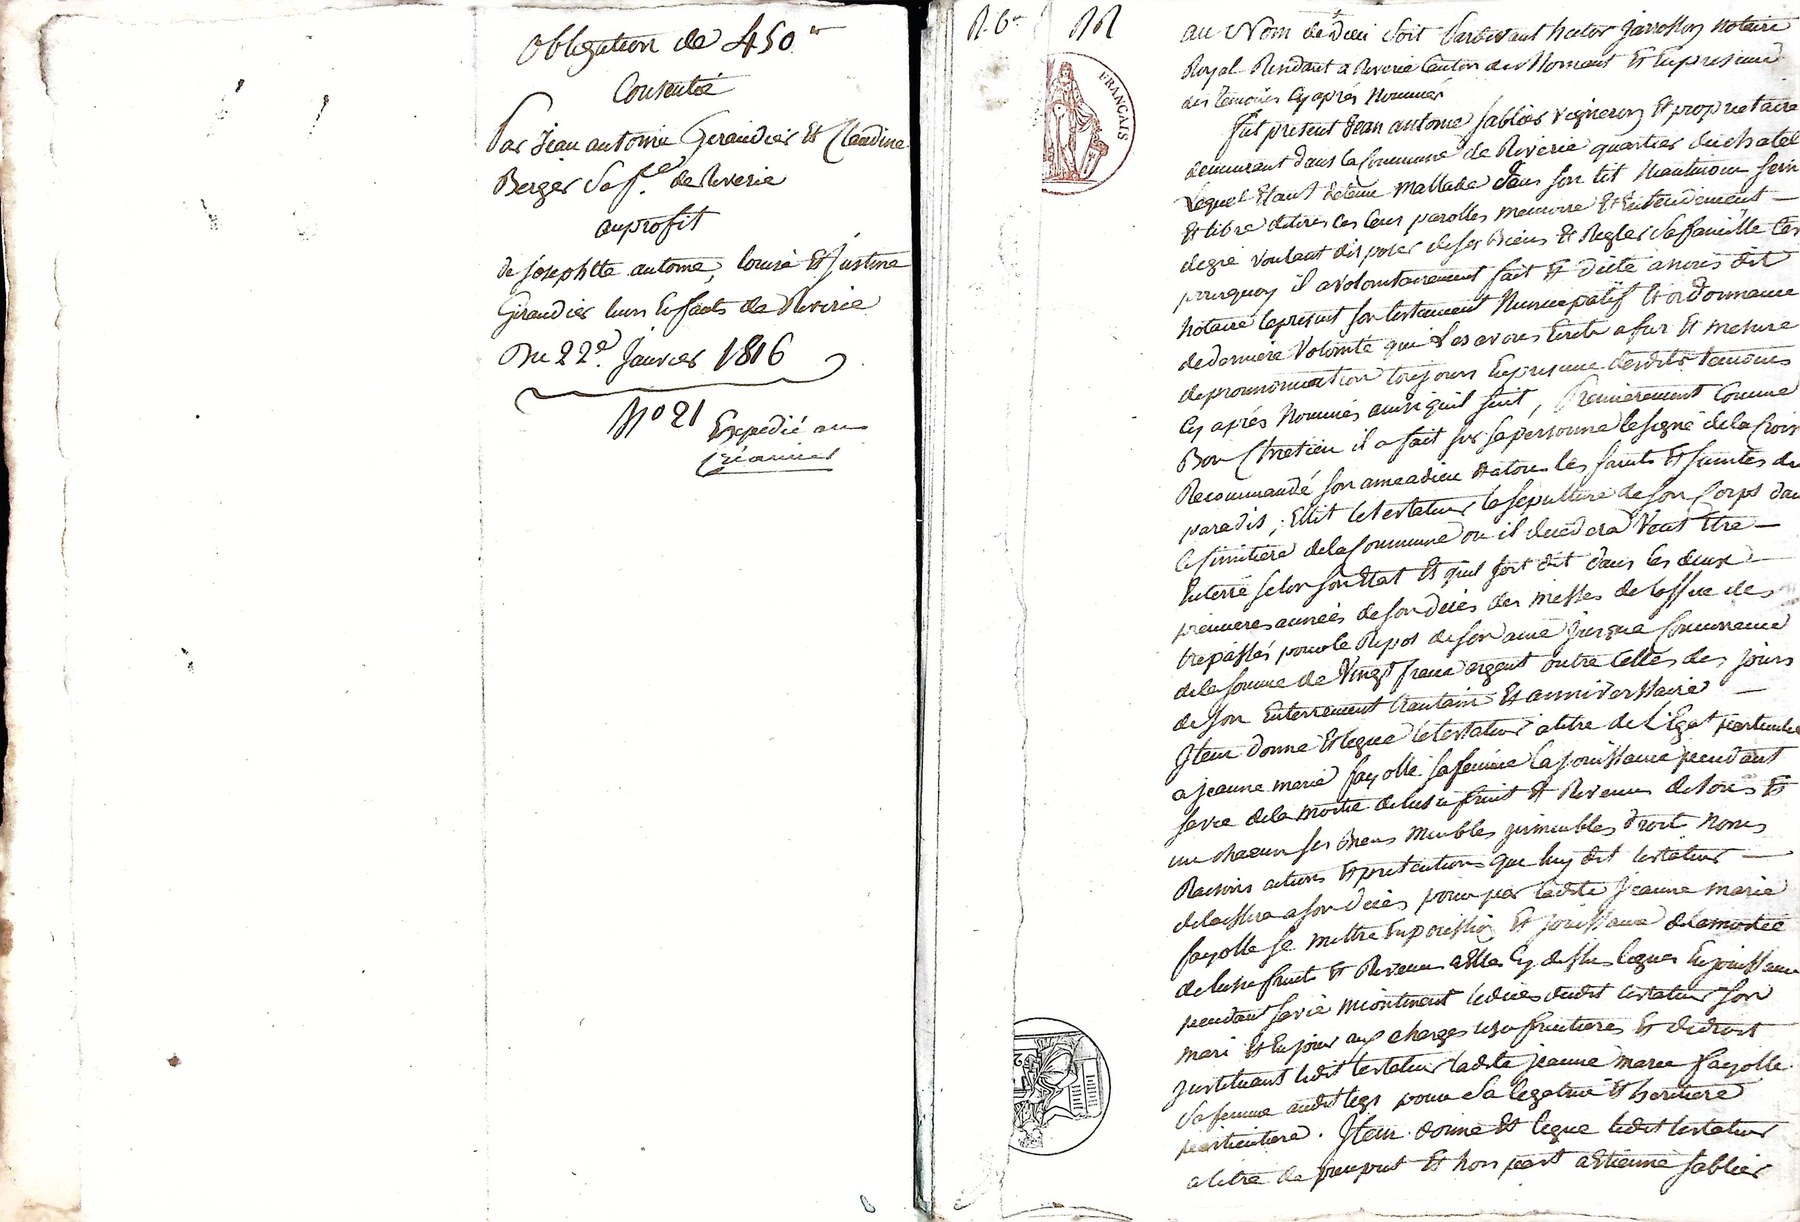 Obligation de 450 ₶
Consentie
Par Jean antoine Giraudier Et Claudine
Berger Sa f.e de Riverie
au profit
de josephtte antoine, louise Et justine
Giraudier leurs Enfants de Riverie
Du 22e. Janvier 1816
No 21 Expedié au
Créancier
FRANÇAIS
au Nom de Dieu soit Pardevant hector jarrosson Notaire
Royal Residant a Riverie Canton de Mornant Et En presence
des temoins Cy aprés Nommés
fut present Jean antoine sablier vigneron Et proprietaire
demeurant dans la Commune de Riverie quartier du chatel
Lequel Etant detenu mallade dans son lit Neantmoin sein
Et libre de tires ses sens parolles memoire Et Entendement
de gré voulant disposer de ses Biens Et Regler sa famille C'est
pourquoy il a volontairement fait Et dicté a nous dit
Notaire le present son testament Nuncupatif Et ordonnance
de derniere Volonté que Nous avons Ecrit a fur Et mesure
de prononciation toujours En presence desdits temoins
Cy aprés Nommés ainsi quil suit, Premierement Comme
Bon Chretien il a fait sur sa personne le signe de la Croix
Recommandé son ame a dieu Et a tous les saints Et saintes du
paradis, Elit le testateur la sepulture de son Corps dans
le simitiere de la Commune ou il decedera Veut Etre
Enterré selon son Etat Et quil soit dit dans les deux
premieres années de son decès des messes de loffice des
trepassés pour le Repos de son ame jusqua Concurrence
de la somme de Vingt franc argent outre Celles des jours
de son Enterrement trantain Et anniverssaire
Item donne Et legue le testateur a titre de Légat particulier
a jeanne marie fayolle sa femme la jouissance pendant
sa vie de la moitié de lusufruit Et Revenus de tous Et
un chacun ses Biens Meubles jmmeubles droit Noms
Raisons actions Et pretentions que luy dit testateur
delaissera a son decès pour par ladite Jeanne marie
fayolle se mettre En possession Et jouissance de la moitié
de lusufruit Et Revenus a Elle Cy dessus legués En jouissance
pendant sa vie incontinent le deces dudit testateur son
mari Et En jouir aux charges usufruitieres Et de droit
Jnstituant ledit testateur ladite jeanne marie fayolle
Sa femme audit legs pour Sa legatrice Et heritiere
particuliere. Item donne Et legue ledit testateur
a titre de preciput Et hors part a Etienne sablier